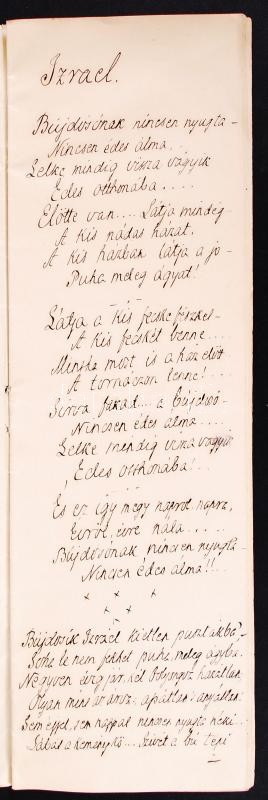 Izrael.
Bujdosónak nincsen nyugta –
Nincsen édes álma. .
Lelke mindig vissza vágyik
Édes otthonába . . . .
Előtte van . . . . Látja mindég –
A kis nádas házat.
A kis házban látja a jó –
Puha meleg ágyat!
Látja a kis fecske fészket –
A kis fecskét benne . . .
Mintha most is a ház előtt
A tornáczon lenne! . . .
Sírva fakad . . . a bujdosó –
Nincsen édes álma . . . .
Lelke mindig vissza vágyik
Édes otthonába! . .
És ez így megy napról, napra,
Évről, évre nála . . . . .
Bujdosónak nincsen nyugta –
Nincsen édes álma!! . .
x x x
x x
Bujdosik Izráel kietlen pusztákba,
Soha le nem fekhet puha, meleg ágyba.
Negyven évig jár, kel folyvást hazátlan
Olyan mint az árva: apátlan anyátlan.
Sem éjjel, sem nappal nincsen nyugta néki . .
Lábát a kemény kő . . . Szívét a bú tépi